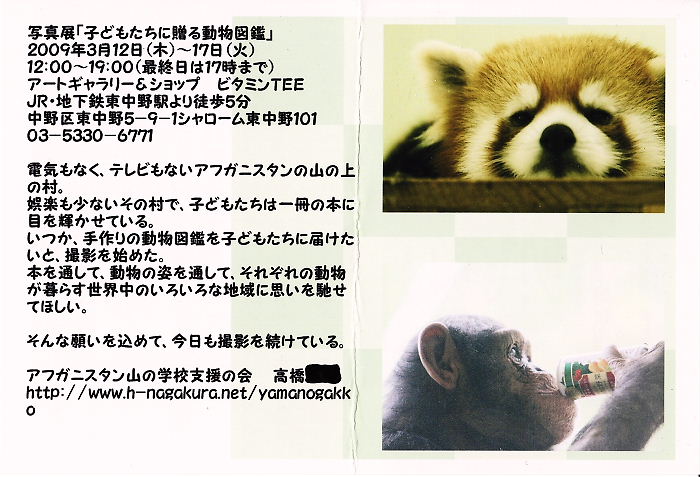 写真展「子どもたちに贈る動物図鑑」
2009年3月12日(木)～17日(火)
12:00～19:00(最終日は17時まで)
アートギャラリー&ショップ　ビタミンTEE
JR・地下鉄東中野駅より徒歩5分
中野区東中野5－9－1シャローム東中野101
03－5330－6771
電気もなく、テレビもないアフガニスタンの山の上
の村。
娯楽も少ないその村で、子どもたちは一冊の本に
目を輝かせている。
いつか、手作りの動物図鑑を子どもたちに届けた
いと、撮影を始めた。
本を通して、動物の姿を通して、それぞれの動物
が暮らす世界中のいろいろな地域に思いを馳せ
てほしい。
そんな願いを込めて、今日も撮影を続けている。
アフガニスタン山の学校支援の会　高橋
http://www.h-nagakura.net/yamanogakk
o